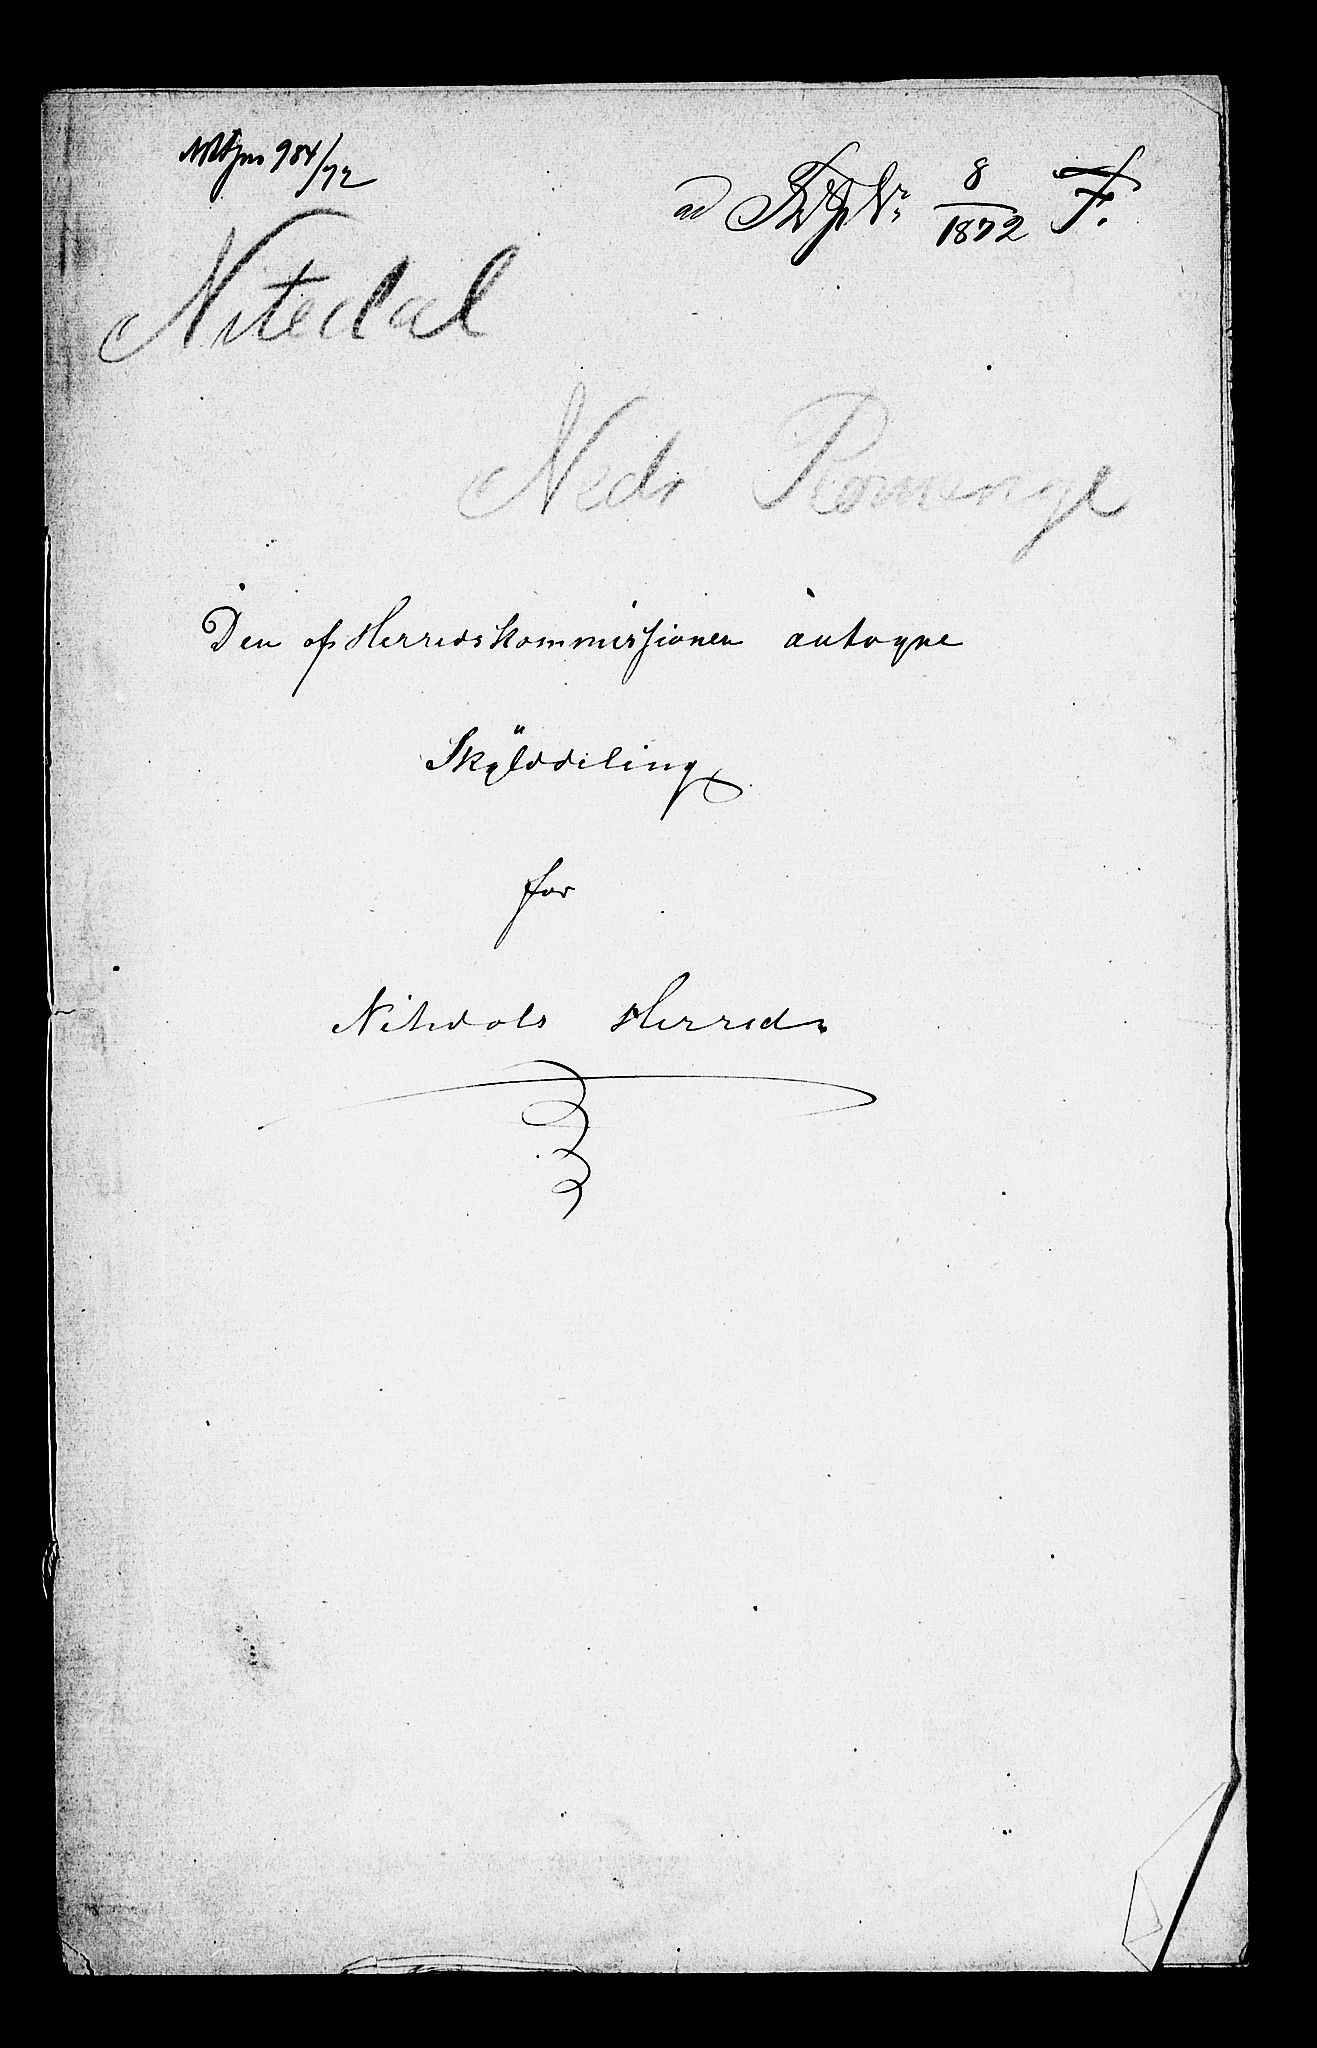 984/72
ad No 8/1872 F.
Nitedal
Nedr Romerige
Den af Herredskommissionen antagne
Skylddeling
for
Nitedals Herred.